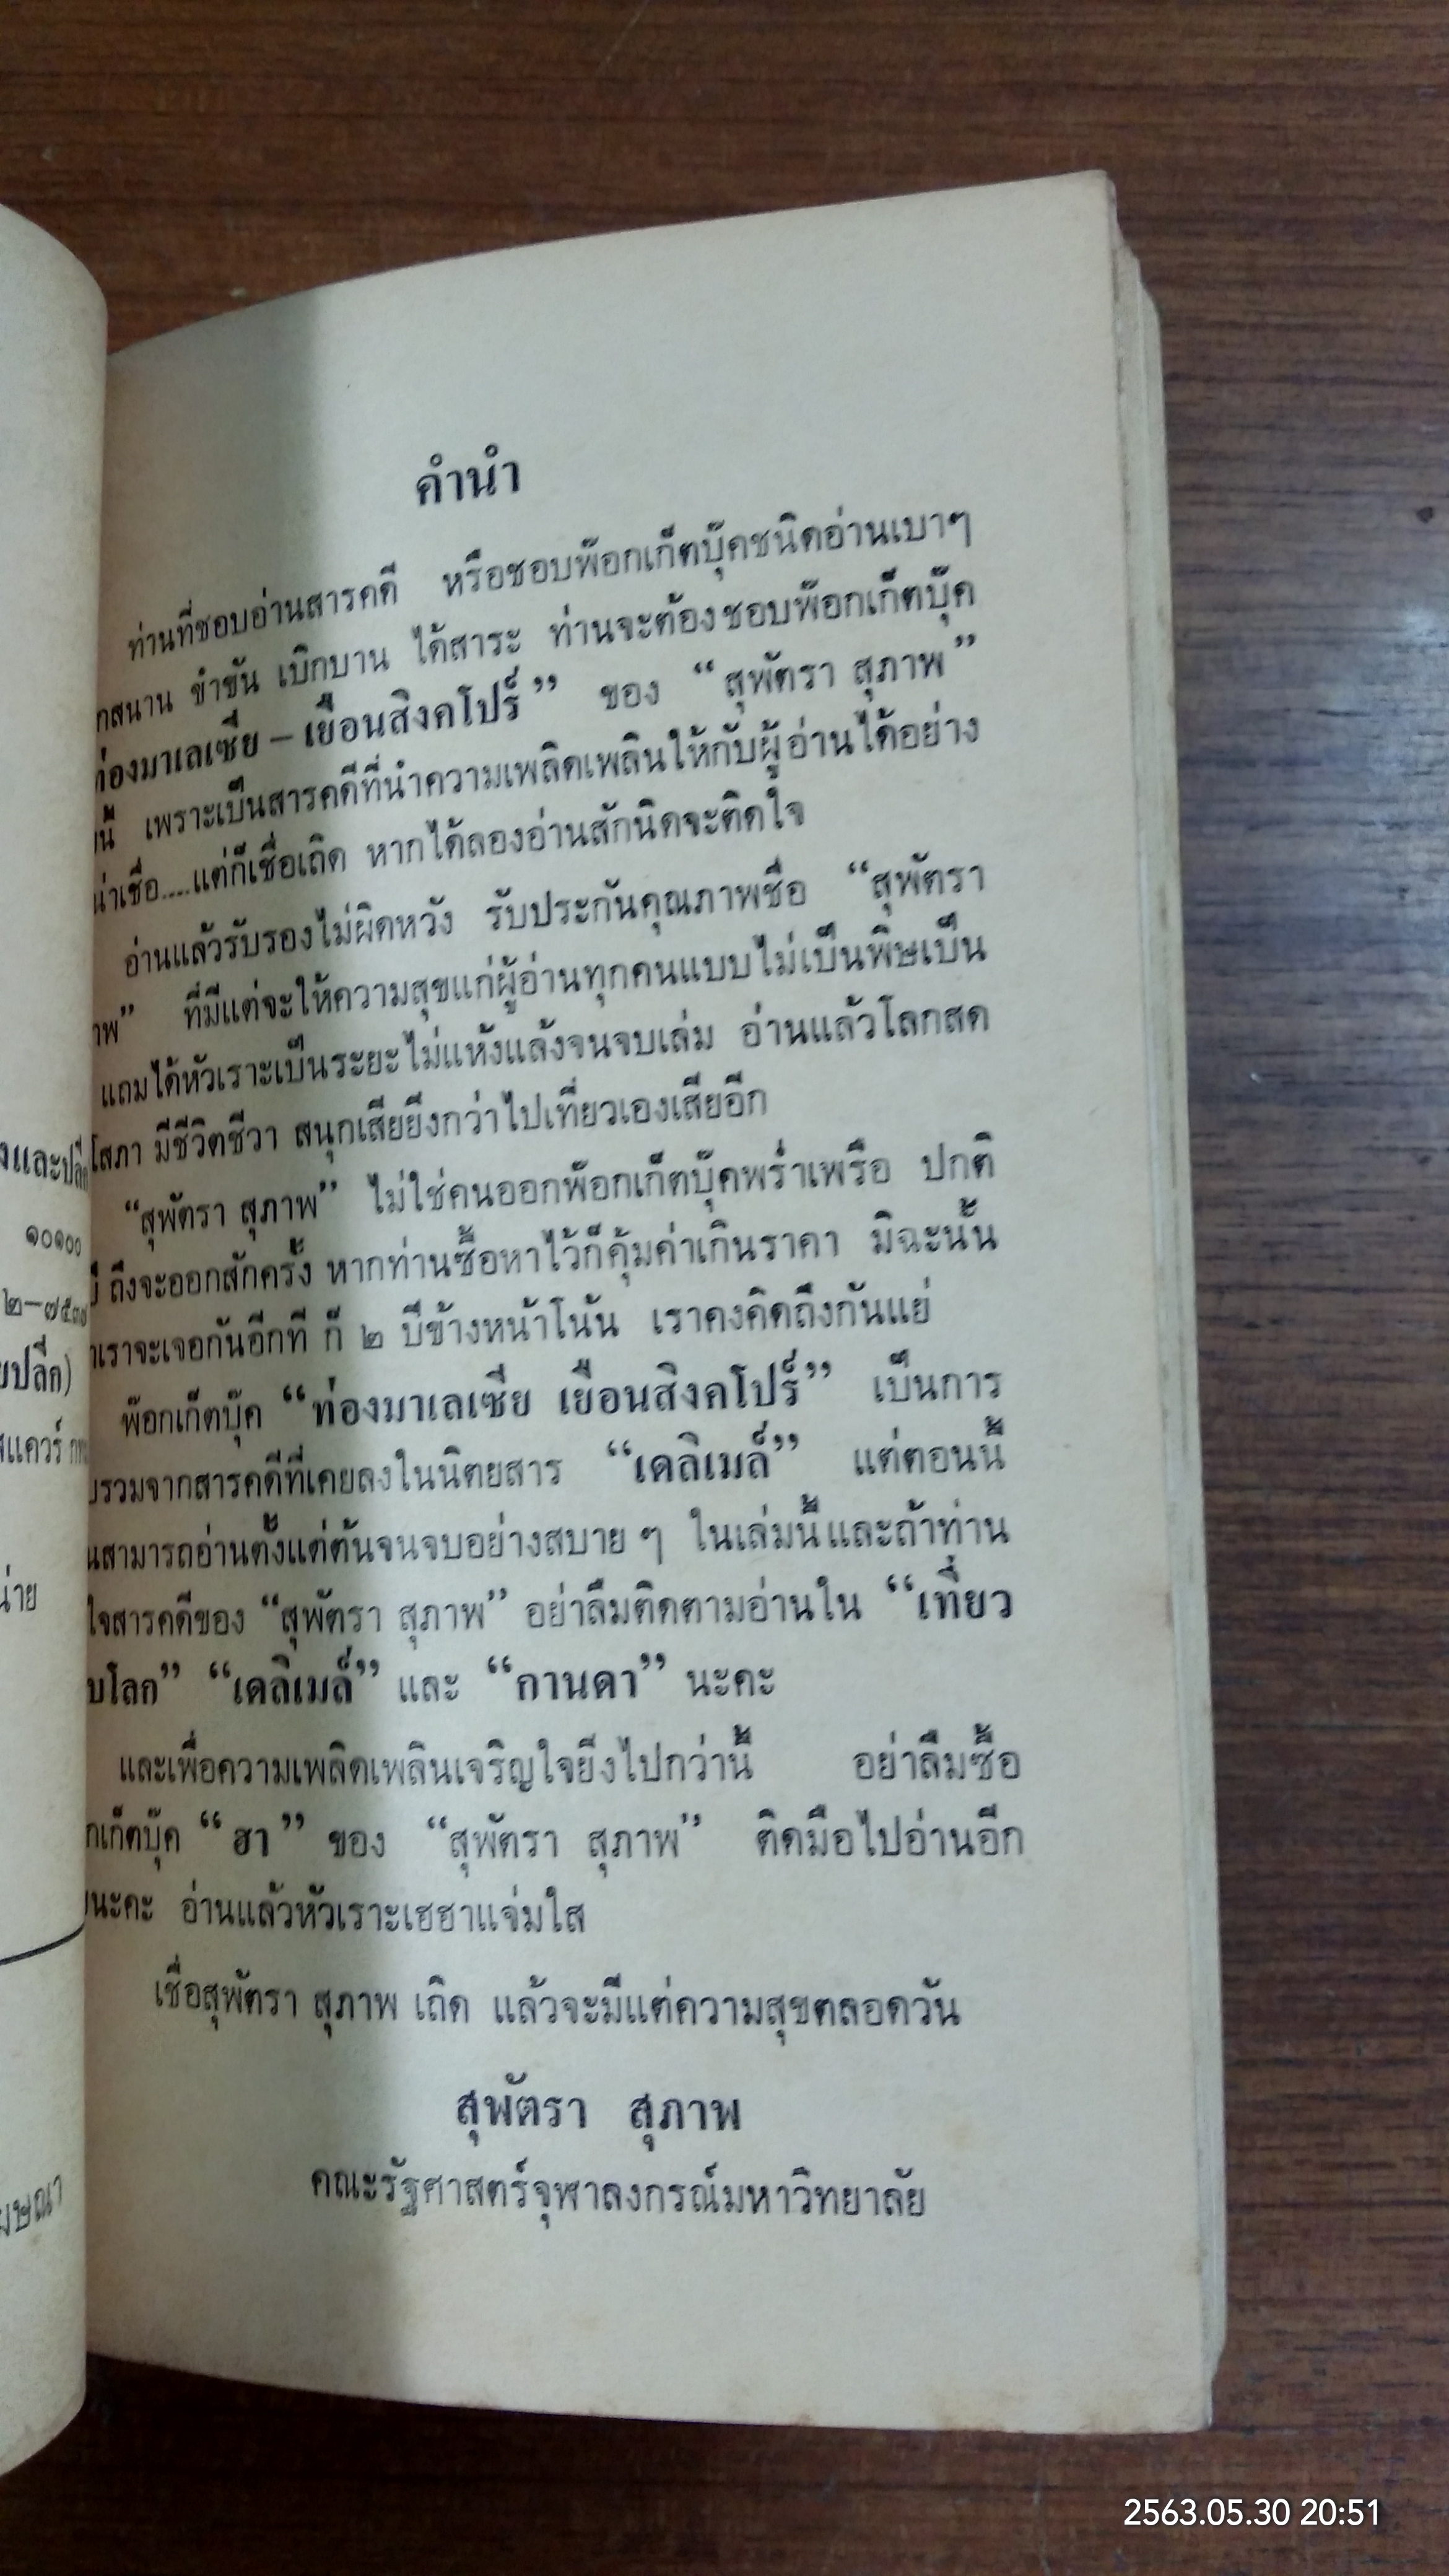 คำนำ
ท่านที่ชอบอ่านสารคดี หรือชอบพ๊อกเก็ตบุ๊คชนิดอ่านเบาๆ
กสนาน ขำขัน เบิกบาน ได้สาระ ท่านจะต้องชอบพ๊อกเก็ตบุ๊ค
ท่องมาเลเซีย – เยือนสิงคโปร์” ของ “สุพัตรา สุภาพ”
นี้ เพราะเป็นสารคดีที่นำความเพลิดเพลินให้กับผู้อ่านได้อย่าง
น่าเชื่อ....แต่ก็เชื่อเถิด หากได้ลองอ่านสักนิดจะติดใจ
อ่านแล้วรับรองไม่ผิดหวัง รับประกันคุณภาพชื่อ “สุพัตรา
าพ” ที่มีแต่จะให้ความสุขแก่ผู้อ่านทุกคนแบบไม่เป็นพิษเป็น
แถมได้หัวเราะเป็นระยะไม่แห้งแล้งจนจบเล่ม อ่านแล้วโลกสด
โสภา มีชีวิตชีวา สนุกเสียยิ่งกว่าไปเที่ยวเองเสียอีก
“สุพัตรา สุภาพ” ไม่ใช่คนออกพ๊อกเก็ตบุ๊คพร่ำเพรื่อ ปกติ
ถึงจะออกสักครั้ง หากท่านซื้อหาไว้ก็คุ้มค่าเกินราคา มิฉะนั้น
เราจะเจอกันอีกที ก็ ๒ ปีข้างหน้าโน้น เราคงคิดถึงกันแย่
พ๊อกเก็ตบุ๊ค “ท่องมาเลเซีย เยือนสิงคโปร์” เป็นการ
รวมจากสารคดีที่เคยลงในนิตยสาร “เดลิเมล์” แต่ตอนนี้
นสามารถอ่านตั้งแต่ต้นจนจบอย่างสบาย ๆ ในเล่มนี้และถ้าท่าน
ใจสารคดีของ “สุพัตรา สุภาพ” อย่าลืมติดตามอ่านใน “เที่ยว
บโลก” “เดลิเมล์” และ “กานดา” นะคะ
และเพื่อความเพลิดเพลินเจริญใจยิ่งไปกว่านี้ อย่าลืมซื้อ
กเก็ตบุ๊ค “ฮา” ของ “สุพัตรา สุภาพ” ติดมือไปอ่านอีก
นะคะ อ่านแล้วหัวเราะเฮฮาแจ่มใส
เชื่อสุพัตรา สุภาพ เถิด แล้วจะมีแต่ความสุขตลอดวัน
สุพัตรา สุภาพ
คณะรัฐศาสตร์จุฬาลงกรณ์มหาวิทยาลัย
และปลีก
๑๐๑๐๐
ยปลีก)
สแควร์
น่าย
2563.05.30 20:51